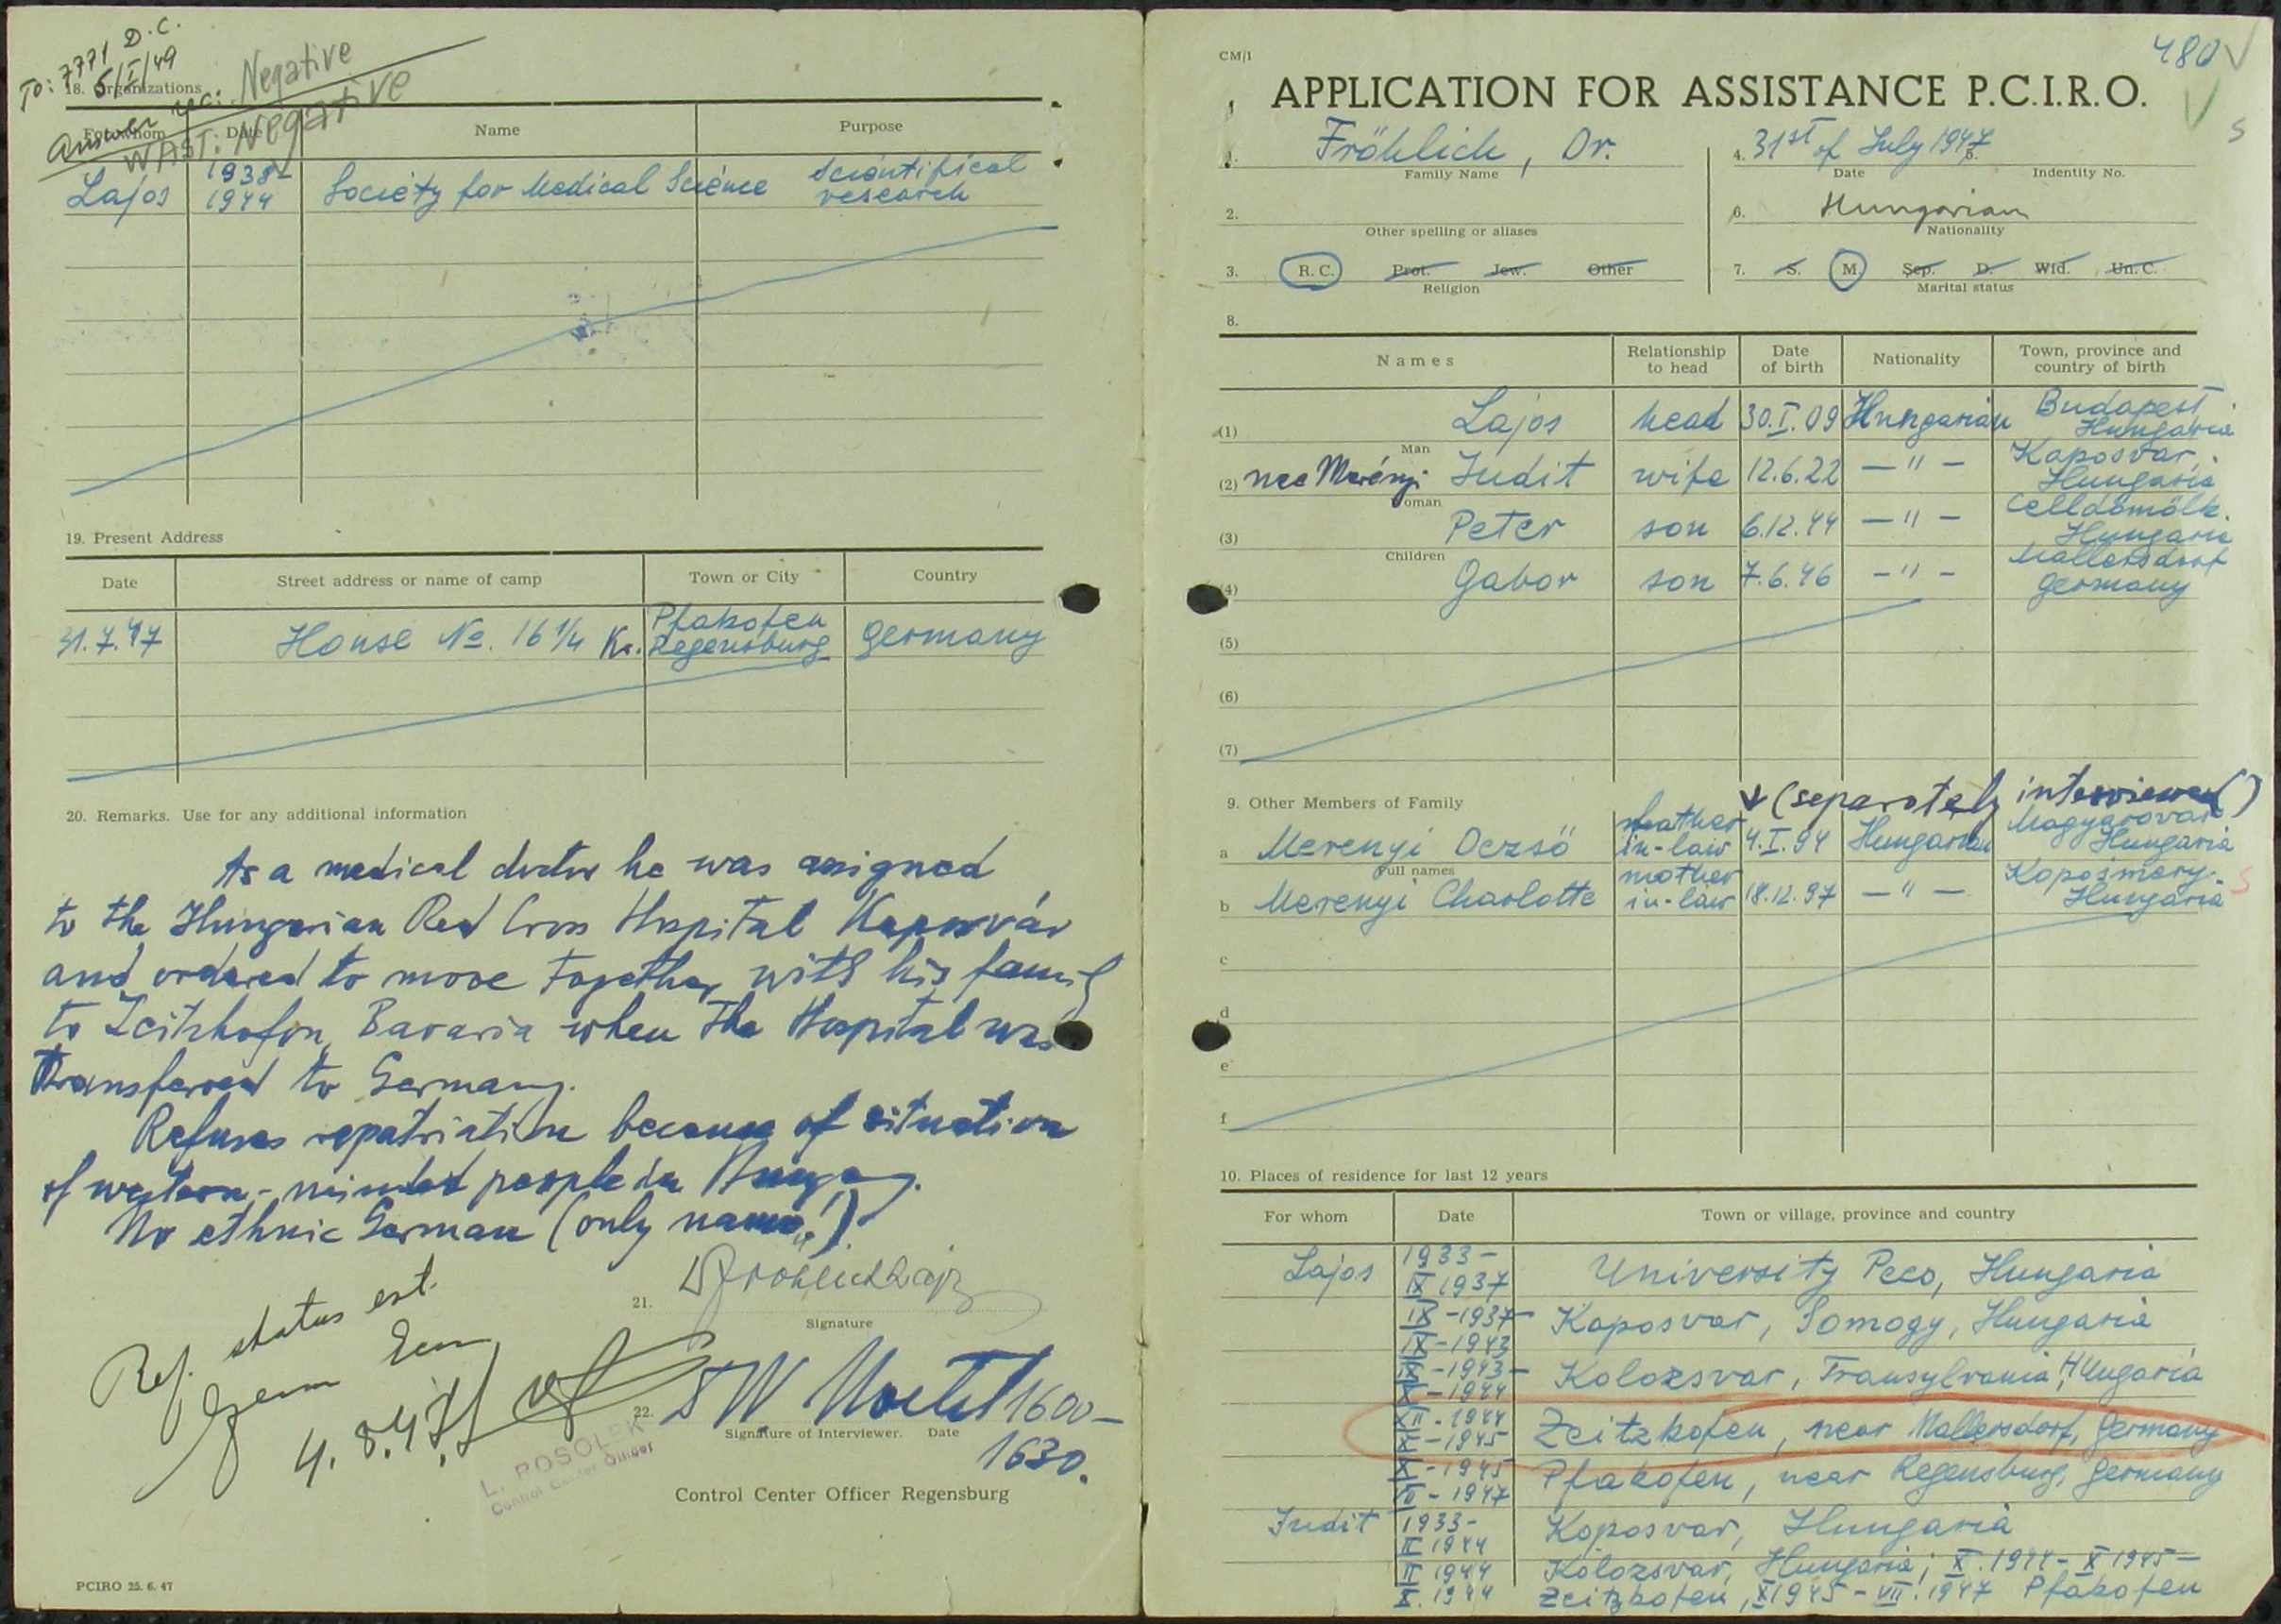 To: 7771 D.C.
5/I/49
18. Organizations
Answer rec: Negative
WAST: Negative
For whom Date Name Purpose
Lajos 1938-1944 Society for Medical Science Scientifical research
19. Present Address
Date Street address or name of camp Town or City Country
31.7.47 House No. 16 1/4 Kr. Pfakofen Regensburg Germany
20. Remarks. Use for any additional information
As a medical doctor he was assigned
to the Hungarian Red Cross Hospital Kaposvár
and ordered to move together with his family
to Zeitzhofen, Bavaria when the Hospital was
transferred to Germany.
Refuses repatriation because of situation
of western-minded people in Hungary.
No ethnic German (only name!).
Ref. status est.
4.8.47
21.
Signature
22.
1600-
1630.
Signature of Interviewer. Date
L. POSOLEK
Control Center Officer
Control Center Officer Regensburg
PCIRO 25. 6. 47
CM/1
480
APPLICATION FOR ASSISTANCE P.C.I.R.O.
1. Fröhlich, Dr.
Family Name
4. 31st of July 1947 5.
Date Indentity No.
2.
Other spelling or aliases
6. Hungarian
Nationality
3. R. C. Prot. Jew. Other
Religion
7. S. M. Sep. D. Wid. Un. C.
Marital status
8.
Names Relationship to head Date of birth Nationality Town, province and country of birth
(1) Lajos head 30.I.09 Hungarian Budapest Hungaria
Man
(2) nee Merényi Judit wife 12.6.22 —"— Kaposvar, Hungaria
Woman
(3) Peter son 6.12.44 —"— Celldömölk. Hungaria
Children
(4) Gabor son 7.6.46 —"— Mallersdorf Germany
(5)
(6)
(7)
9. Other Members of Family ↓ (separately interviewed)
a Merenyi Dezsö father in-law 4.I.94 Hungarian Magyarovar Hungaria
Full names
b Merenyi Charlotte mother in-law 18.12.97 —"— Kaposmery. Hungaria
c
d
e
f
10. Places of residence for last 12 years
For whom Date Town or village, province and country
Lajos 1933- IX 1937 University Pecs, Hungaria
IX-1937- IX-1943 Kaposvar, Somogy, Hungaria
IX-1943- X-1944 Kolozsvar, Transylvania, Hungaria
XII-1944 X-1945 Zeitzkofen, near Mallersdorf, Germany
X-1945 VII-1947 Pfakofen, near Regensburg, Germany
Judit 1933- II 1944 Koposvar, Hungaria
II 1944 Kolozsvar, Hungaria; X.1944-X 1945-
X.1944 Zeitzkofen, X1945-VII.1947 Pfakofen